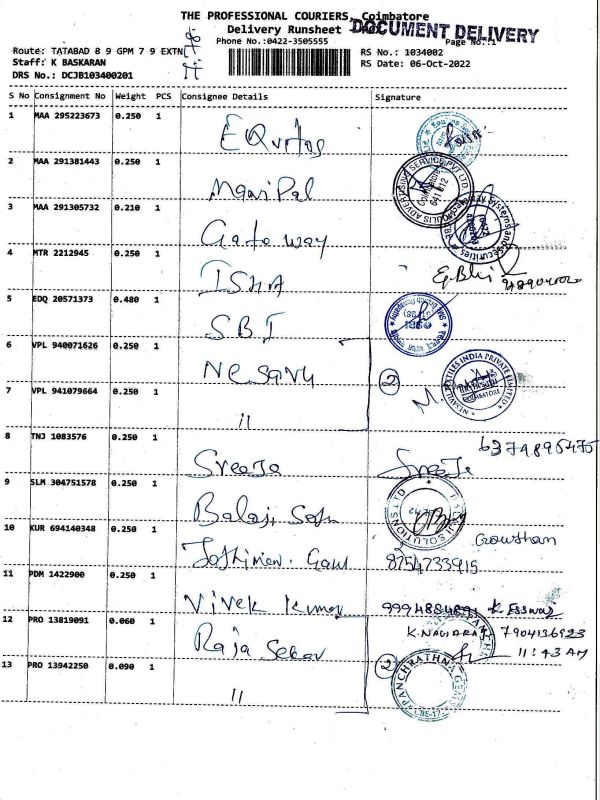 THE PROFESSIONAL COURIERS, Coimbatore
Delivery Runsheet
DOCUMENT DELIVERY
Phone No.:0422-3505555
Page No.:1
Route: TATABAD 8 9 GPM 7 9 EXTN
RS No.: 1034002
Staff: K BASKARAN
RS Date: 06-Oct-2022
DRS No.: DCJB103400201
S No Consignment No Weight PCS Consignee Details Signature
1 MAA 295223673 0.250 1 EQuitas
2 MAA 291381443 0.250 1 Manipal
3 MAA 291305732 0.210 1 Gateway
4 MTR 2212945 0.250 1 ISHA
5 EDQ 20571373 0.480 1 SBI
6 VPL 940071626 0.250 1 Nesavu
7 VPL 941079664 0.250 1 11 2
8 TNJ 1083576 0.250 1 Sreeja Sreeja 6379895475
9 SLM 304751578 0.250 1 Balaji Soft
10 KUR 694140348 0.250 1 8754733915 Gowtham
11 PDM 1422900 0.250 1 Vivek Kumar K. Esswar
12 PRO 13819091 0.060 1 Raja Sekar K.NAGARAJ 7904136923
11:43 AM
13 PRO 13942250 0.090 1 11 2